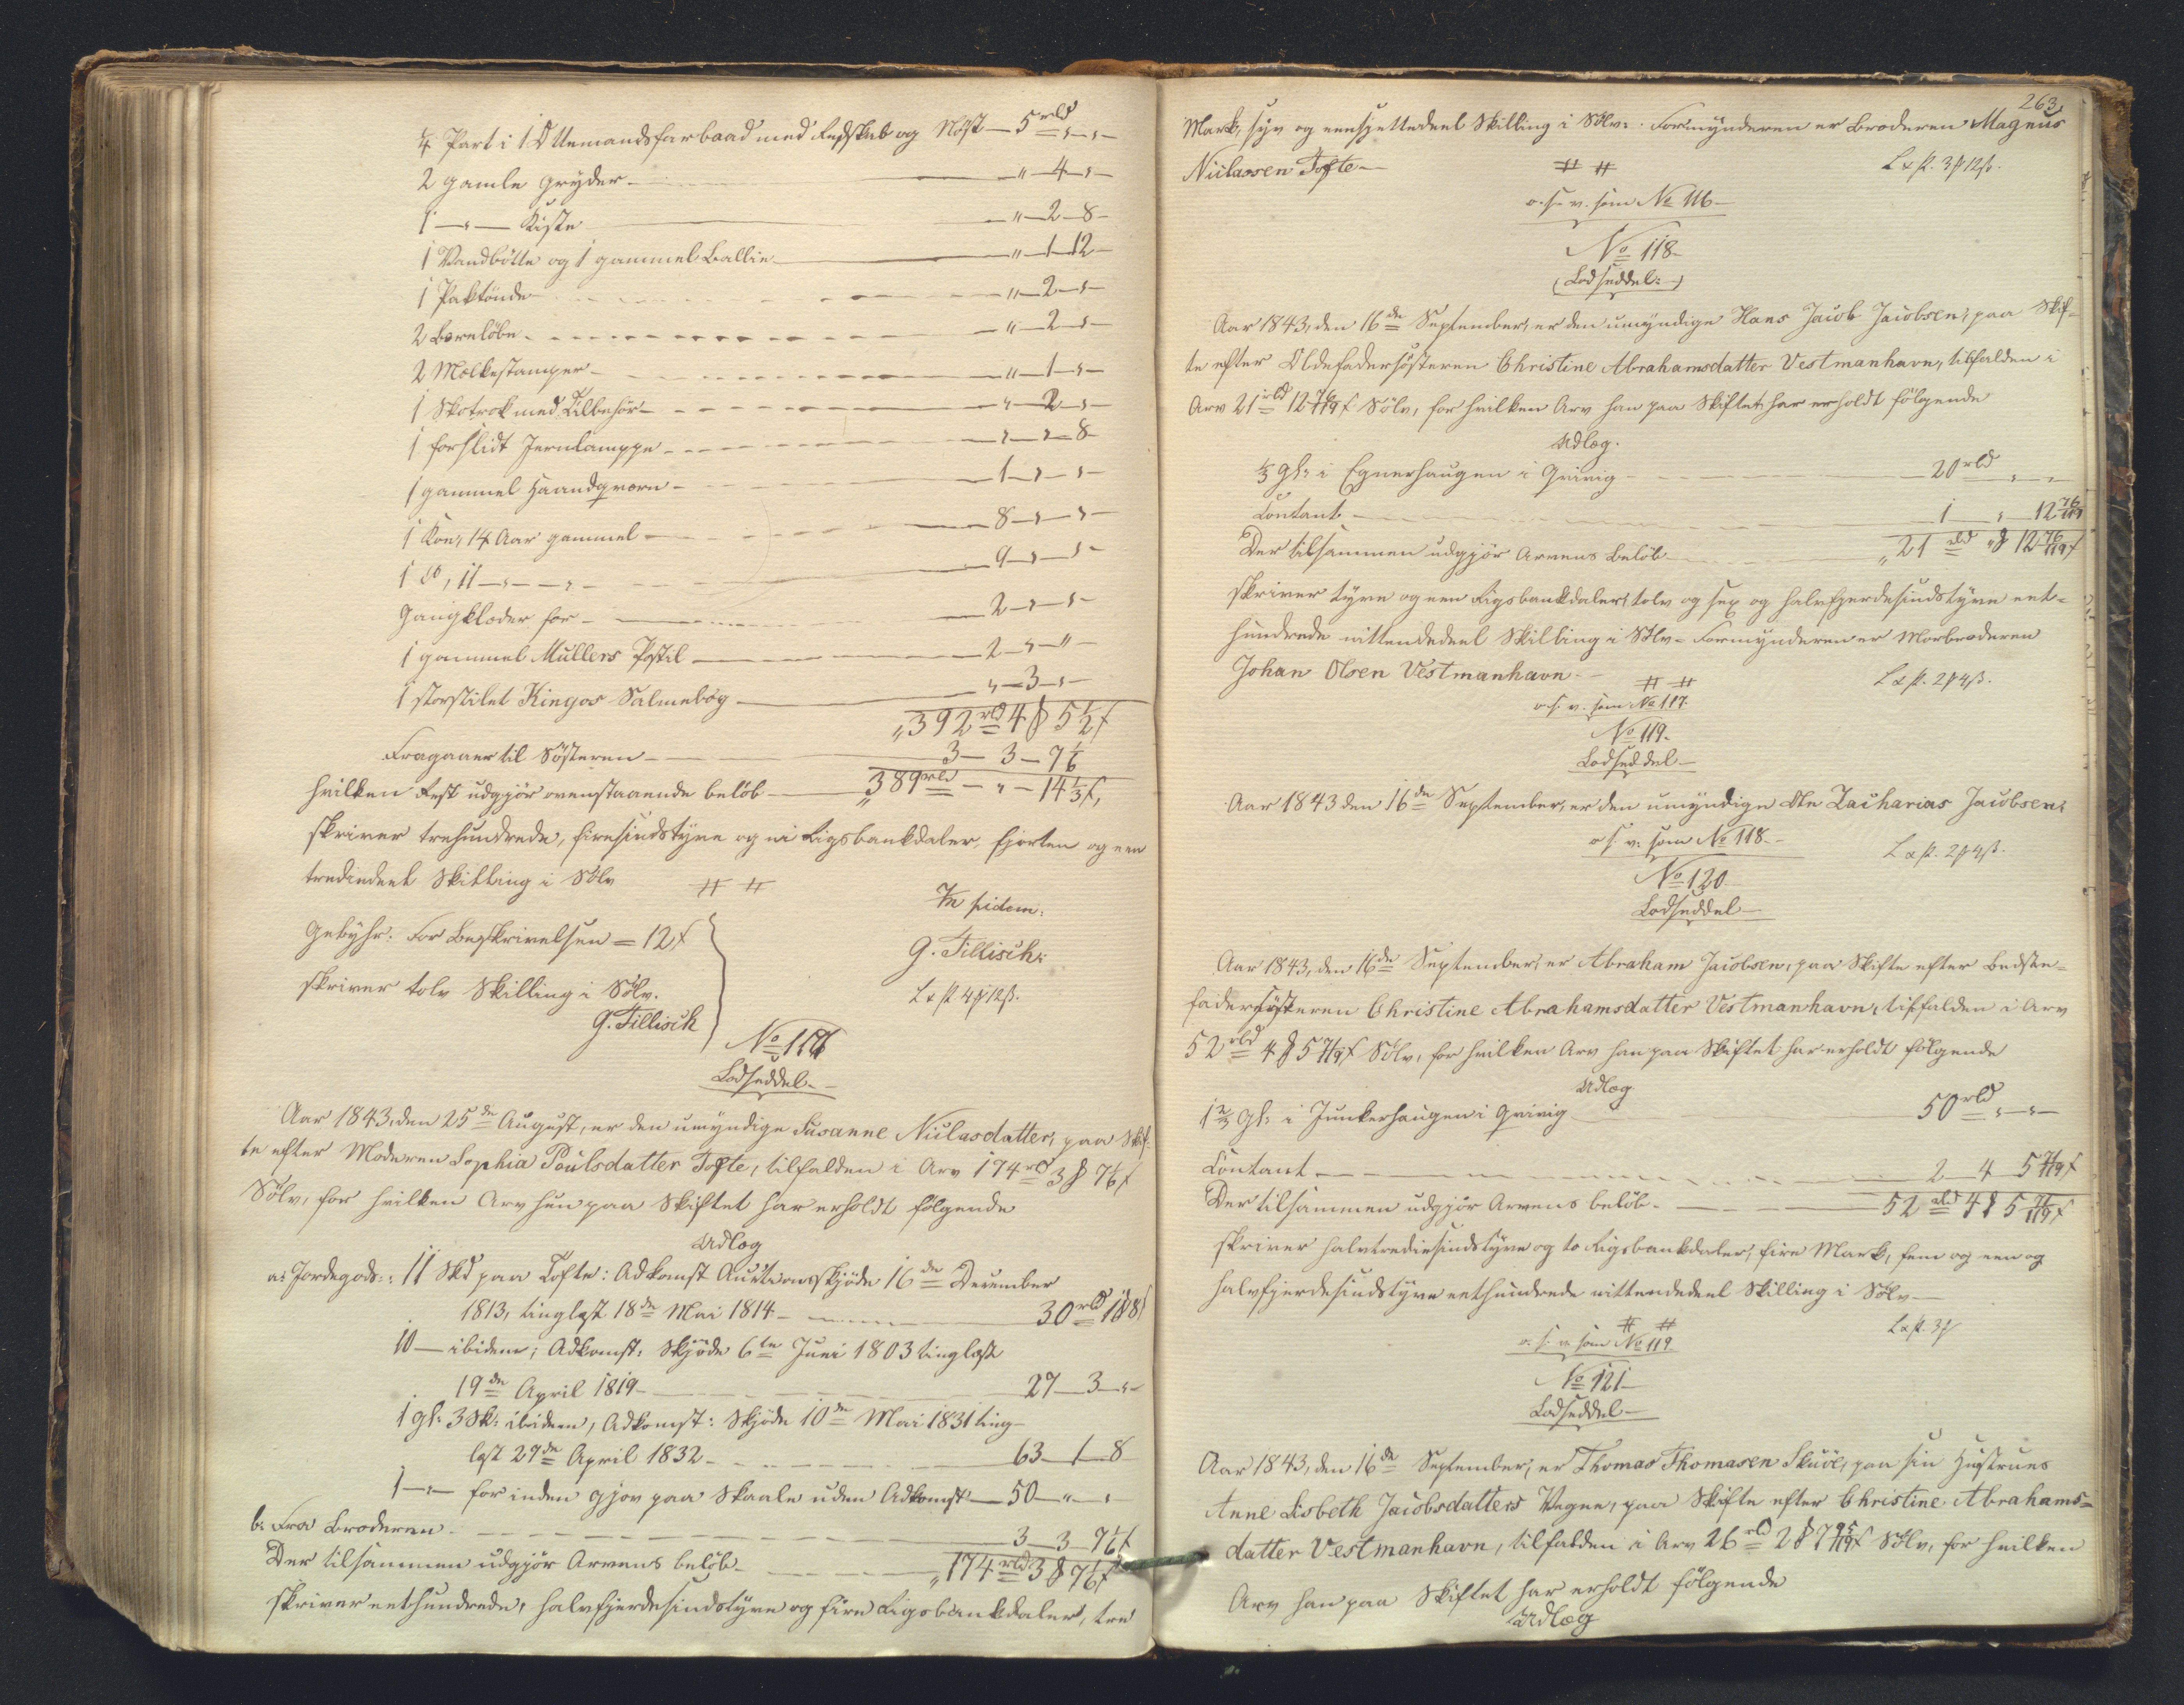 ¼ Part i 1 Ottemandsfarbaad med Redskab og Nøst — 5 rbd „ „
2 gamle Gryder — „ 4 „
1 — „ — Kiste — „ 2 8
1 Vandbøtte og 1 gammel Ballie — „ 1 12
1 Saltønde — „ 2 „
2 Bornløbe — „ 2 „
2 Mælkestamper — „ 1 „
1 Skotrok med Tilbehør — „ 2 „
1 forslidt Jernlamppe — „ „ 8
1 gammel Haandqværn — 1 „ „
1 Koe, 14 Aar gammel — 8 „ „
1 do, 11 — „ — „ — 9 „ „
Gangklæder for — 2 „ „
1 gammel Müllers Postil — 2 „ „
1 storstilet Kingos Salmebog — „ 3 „
„392 rbd 4 ₰ 5½ s
Fragaaer til Søsteren — 3 — 3 — 7⅙
hvilken Rest udgjør ovenstaaende beløb — „389 rbd — „ — 14⅓ s,
skriver trehundrede, firesindstyve og ni Rigsbankdaler, fjorten og een
trediedeel Skilling i Sølv # #
In fidem:
Gebyhr: For Beskrivelsen = 12 s
G. Tillisch:
skriver tolv Skilling i Sølv.
L & st. 4 ₰ 12 ß.
G. Tillisch
No 116
Lodseddel.
Aar 1843, den 25de August, er den umyndige Susanne Niclasdatter, paa Skif-
te efter Moderen Sophia Poulsdatter Tofte, tilfalden i Arv 174 rbd 3 ₰ 7⅙ s
Sølv, for hvilken Arv hun paa Skiftet har erholdt følgende
Udlæg
a: Jordegods: 11 Skd paa Tofte: Adkomst Auctionsskjøde 16de December
1813, tinglæst 18de Mai 1814 — 30 rbd 1 ₰ 8 s
10 — ibidem; Adkomst: Skjøde 6te Juni 1803 tinglæst
19de April 1819 — 27 — 3 — „
1 Gl: 3 Sk: ibidem, Adkomst: Skjøde 10de Mai 1831 ting-
læst 27de April 1832 — 63 — 1 — 8
1 — „ — for inden Gjov paa Skaale uden Adkomst — 50 — „ — „
b. Fra Broderen — 3 — 3 — 7⅙ s
Der tilsammen udgjør Arvens beløb — „174 rbd 3 ₰ 7⅙ s
skriver eethundrede, halvfjerdesindstyve og fire Rigsbankdaler, tre
263.
Mark, syv og eensjettedeel Skilling i Sølv: Formynderen er Broderen Magnus
Niclassen Tofte — # # L & st. 3 ₰ 12 ß.
o. s. v. som No 116 —
No 118
(Lodseddel:)
Aar 1843, den 16de September, er den umyndige Hans Jacob Jacobsen, paa Skif-
te efter Oldefadersøsteren Christine Abrahamsdatter Vestmanhavn, tilfalden i
Arv 21 rbd 12 76/119 s Sølv, for hvilken Arv han paa Skiftet har erholdt følgende
Udlæg.
⅔ Gl: i Egnerhaugen i Qvivig — 20 rbd „ „
Contant — 1 „ 12 76/119
Der tilsammen udgjør Arvens Beløb — „21 rbd „ ₰ 12 76/119 s
skriver tyve og een Rigsbankdaler, tolv og sex og halvfjerdesindstyve eet-
hundrede nittendedeel Skilling i Sølv = Formynderen er Morbroderen
Johan Olsen Vestmanhavn — # # L & st. 2 ₰ 4 ß.
o. s. v. som No 117.
No 119.
Lodseddel —
Aar 1843 den 16de September, er den umyndige Ole Zacharias Jacobsen,
o s. v. som No 118 — L & st. 2 ₰ 4 ß.
No 120
Lodseddel —
Aar 1843, den 16de September, er Abraham Jacobsen, paa Skifte efter Bedste-
fadersøsteren Christine Abrahamsdatter Vestmanhavn, tilfalden i Arv
52 rbd 4 ₰ 5 71/119 s Sølv, for hvilken Arv han paa Skiftet har erholdt følgende
Udlæg
1⅔ Gl: i Junkerhaugen i Qvivig — 50 rbd „ „
Contant — 2 — 4 — 5 71/119 s
Der tilsammen udgjør Arvens beløb — 52 rbd 4 ₰ 5 71/119 s
skriver halvtrediesindstyve og to Rigsbankdaler, fire Mark, fem og een og
halvfjerdesindstyve eethundrede nittendedeel Skilling i Sølv —
# # L & st. 3 ₰
o. s. v. som No 119
No 121
Lodseddel —
Aar 1843, den 16de September, er Thomas Thomasen Skuöe, paa sin Hustrues
Anne Lisbeth Jacobsdatters Vegne, paa Skifte efter Christine Abrahams-
datter Vestmanhavn, tilfalden i Arv 26 rbd 2 ₰ 7 95/119 s Sølv, for hvilken
Arv han paa Skiftet har erholdt følgende
Udlæg